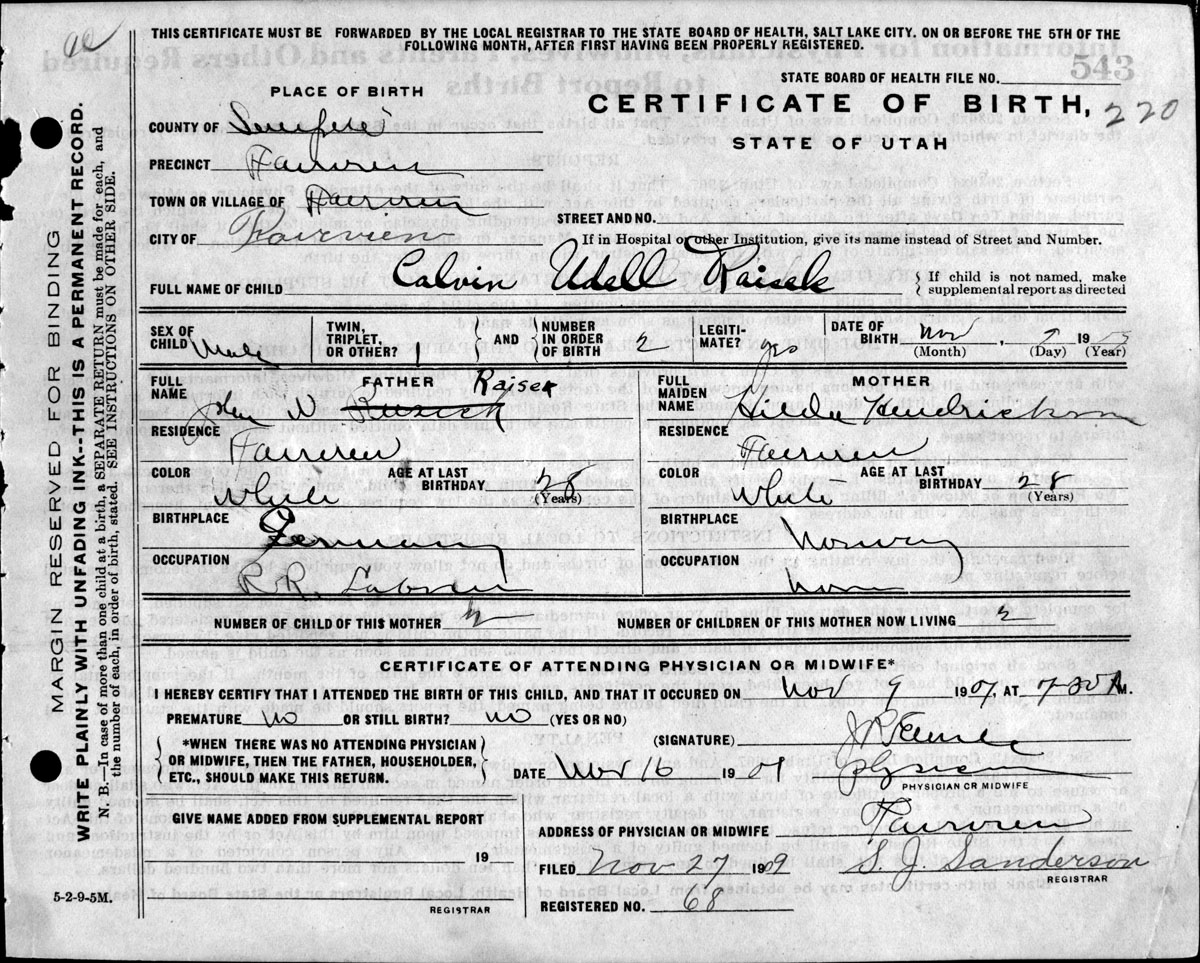 THIS CERTIFICATE MUST BE FORWARDED BY THE LOCAL REGISTRAR TO THE STATE BOARD OF HEALTH, SALT LAKE CITY. ON OR BEFORE THE 5TH OF THE
FOLLOWING MONTH, AFTER FIRST HAVING BEEN PROPERLY REGISTERED.
543
STATE BOARD OF HEALTH FILE NO.
PLACE OF BIRTH
CERTIFICATE OF BIRTH, 220
STATE OF UTAH
COUNTY OF
PRECINCT
TOWN OR VILLAGE OF
STREET AND NO.
CITY OF Fairview
If in Hospital or other Institution, give its name instead of Street and Number.
FULL NAME OF CHILD Calvin Udell Raisek
{ If child is not named, make
supplemental report as directed
SEX OF CHILD Male
TWIN, TRIPLET, OR OTHER? 1
AND
NUMBER IN ORDER OF BIRTH 2
LEGITIMATE? yes
DATE OF BIRTH Nov , 19
(Month) (Day) (Year)
FULL NAME FATHER Raisek
John N
FULL MAIDEN NAME MOTHER
Hilda Hendrickson
RESIDENCE Fairview
RESIDENCE Fairview
COLOR White
AGE AT LAST BIRTHDAY 28
(Years)
COLOR White
AGE AT LAST BIRTHDAY 28
(Years)
BIRTHPLACE Germany
BIRTHPLACE Norway
OCCUPATION R.R. Labor
OCCUPATION
NUMBER OF CHILD OF THIS MOTHER 2
NUMBER OF CHILDREN OF THIS MOTHER NOW LIVING 2
CERTIFICATE OF ATTENDING PHYSICIAN OR MIDWIFE*
I HEREBY CERTIFY THAT I ATTENDED THE BIRTH OF THIS CHILD, AND THAT IT OCCURED ON Nov 9 1909, AT 7 30 A M.
PREMATURE No OR STILL BIRTH? No (YES OR NO)
*WHEN THERE WAS NO ATTENDING PHYSICIAN
OR MIDWIFE, THEN THE FATHER, HOUSEHOLDER,
ETC., SHOULD MAKE THIS RETURN.
(SIGNATURE)
DATE Nov 16 19 09
PHYSICIAN OR MIDWIFE
GIVE NAME ADDED FROM SUPPLEMENTAL REPORT
19
REGISTRAR
ADDRESS OF PHYSICIAN OR MIDWIFE Fairview
FILED Nov 27 1909 S. J. Sanderson
REGISTRAR
REGISTERED NO. 68
5-2-9-5M.
MARGIN RESERVED FOR BINDING
WRITE PLAINLY WITH UNFADING INK--THIS IS A PERMANENT RECORD.
N. B.—In case of more than one child at a birth, a SEPARATE RETURN must be made for each, and
the number of each, in order of birth, stated. SEE INSTRUCTIONS ON OTHER SIDE.